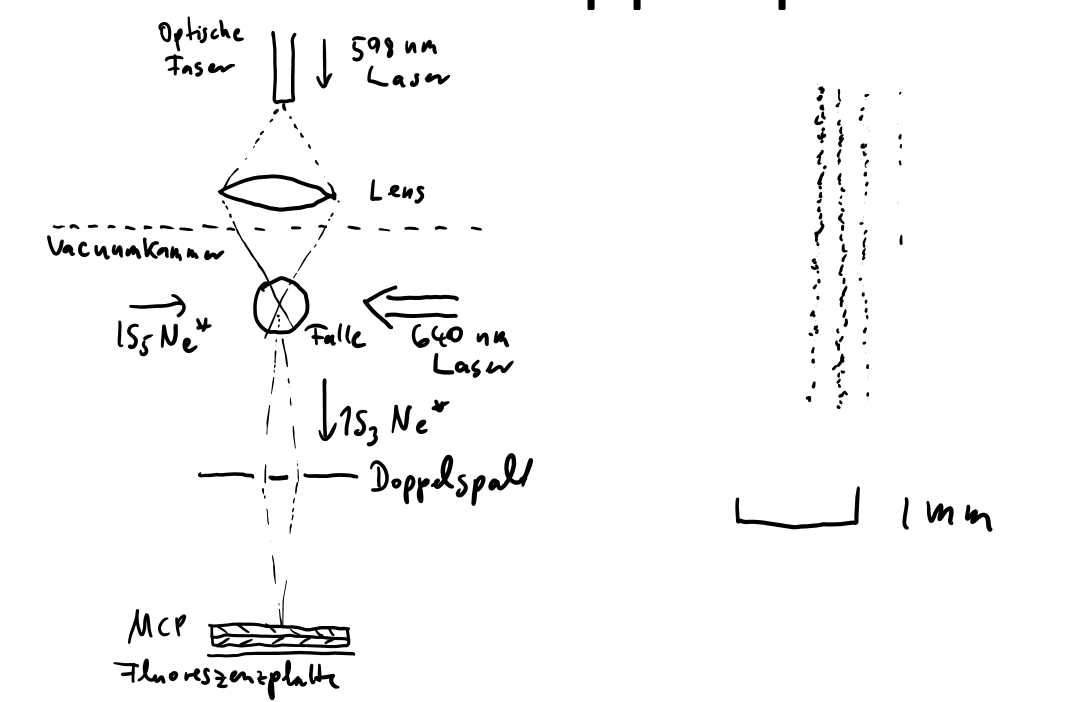 Optische
Faser
598 nm
Laser
Lens
Vacuumkammer
1S5 Ne*
Falle
640 nm
Laser
1S3 Ne*
Doppelspalt
1 mm
MCP
Fluoreszenzplatte